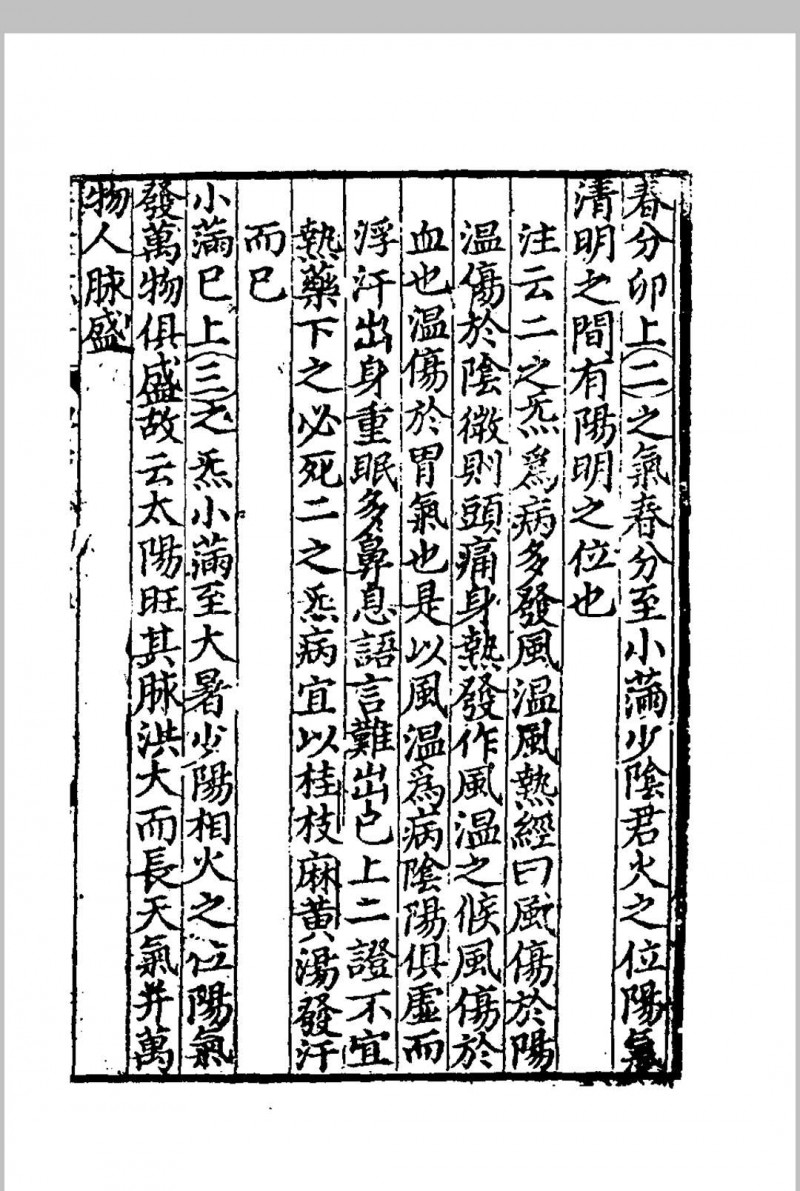 春分卯上(二)之氣春分至小滿少陰君火之位陽氣
清明之間有陽明之位也
注云二之炁爲病多發風溫風熱經曰風傷於陽
溫傷於陰微則頭痛身熱發作風溫之候風傷於
血也溫傷於胃氣也是以風溫爲病陰陽俱虛而
浮汗出身重眠多鼻息語言難出已上二證不宜
熱藥下之必死二之炁病宜以桂枝麻黃湯發汗
而已
小滿巳上(三)之炁小滿至大暑少陽相火之位陽氣
發萬物俱盛故云太陽旺其脉洪大而長天氣并萬
物人脉盛